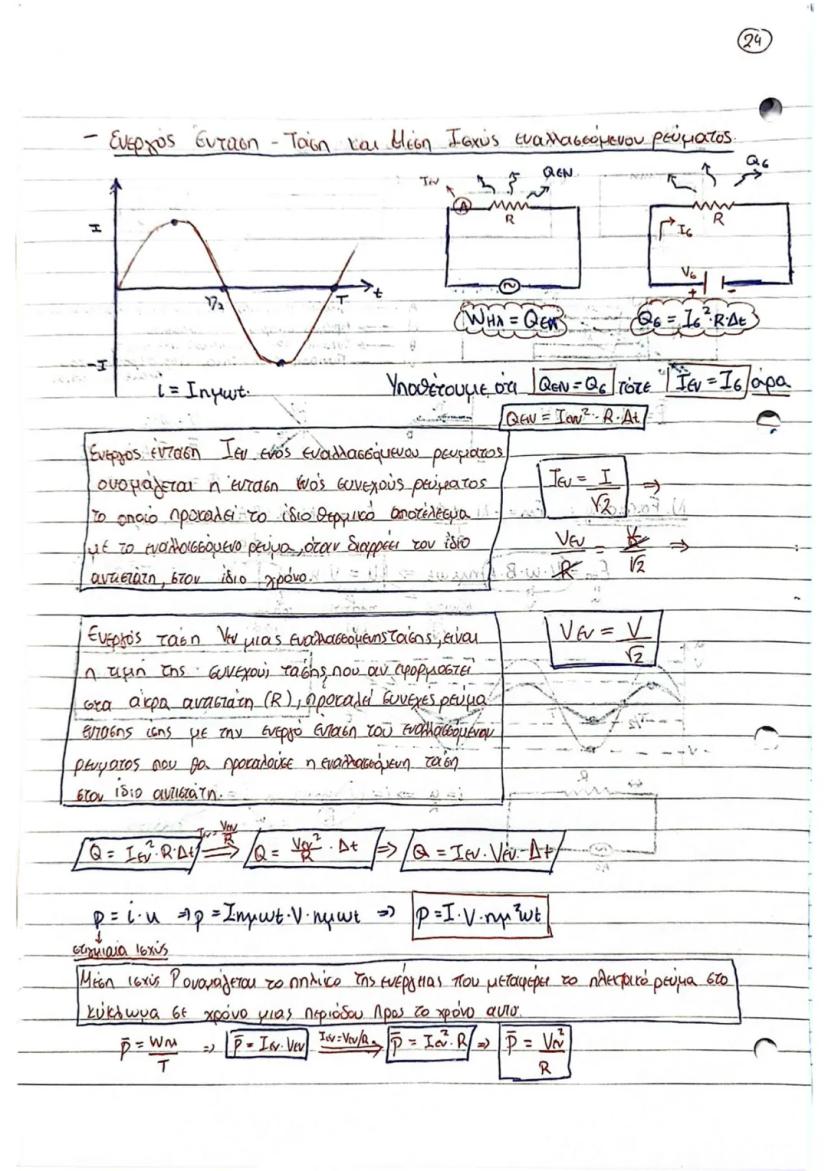 24
- Ενεργός Ένταση - Τάση και Μέση Ισχύς εναλλασσόμενου ρεύματος.
I
T/2
T
t
-I
i = Iημωt.
Iεν
QΕΝ
A
R
~
WΗΛ = QΕΝ
Qσ
R
Iσ
Vσ
+ -
Qσ = Iσ²·R·Δt
Υποθέτουμε ότι QΕΝ = Qσ τότε Iεν = Iσ άρα
QΕΝ = Iεν²·R·Δt
Ενεργός ένταση Iεν ενός εναλλασσόμενου ρεύματος
ονομάζεται η ένταση ενός συνεχούς ρεύματος
το οποίο προκαλεί το ίδιο θερμικό αποτέλεσμα
με το εναλλασσόμενο ρεύμα, όταν διαρρέει τον ίδιο
αντιστάτη, στον ίδιο χρόνο.
Iεν = I/√2 ⇒
Vεν/R = V/R/√2 ⇒
Vεν = V/√2
Ενεργός τάση Vεν μιας εναλλασσόμενης τάσης, είναι
η τιμή της συνεχούς τάσης, που αν εφαρμοστεί
στα άκρα αντιστάτη (R), προκαλεί συνεχές ρεύμα
έντασης ίσης με την ενεργό ένταση του εναλλασσόμενου
ρεύματος που θα προκαλούσε η εναλλασσόμενη τάση
στον ίδιο αντιστάτη.
Q = Iεν²·R·Δt Iεν=Vεν/R ⇒ Q = Vεν²/R · Δt ⇒ Q = Iεν·Vεν·Δt
p = i·u ⇒ p = Iημωt·V·ημωt ⇒ p = I·V·ημ²ωt
στιγμιαία ισχύς
Μέση ισχύς P ονομάζεται το πηλίκο της ενέργειας που μεταφέρει το ηλεκτρικό ρεύμα στο
κύκλωμα σε χρόνο μιας περιόδου προς το χρόνο αυτό.
P̄ = Wηλ/T ⇒ P̄ = Iεν·Vεν Iεν=Vεν/R ⇒ P̄ = Iεν²·R ⇒ P̄ = Vεν²/R